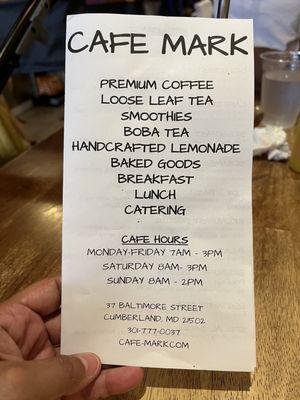 CAFE MARK
PREMIUM COFFEE
LOOSE LEAF TEA
SMOOTHIES
BOBA TEA
HANDCRAFTED LEMONADE
BAKED GOODS
BREAKFAST
LUNCH
CATERING
CAFE HOURS
MONDAY-FRIDAY 7AM - 3PM
SATURDAY 8AM- 3PM
SUNDAY 8AM - 2PM
37 BALTIMORE STREET
CUMBERLAND, MD 21502
301-777-0037
CAFE-MARK.COM